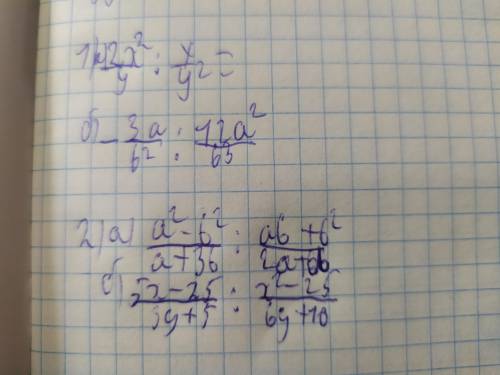 1) а) 2x²/y : x/y² =
б) - 3a/b² : 12a²/b³
2) а) a² - b²/a + 3b : ab + b²/2a + 6b
б) 5x - 25/3y + 5 : x² - 25/6y + 10